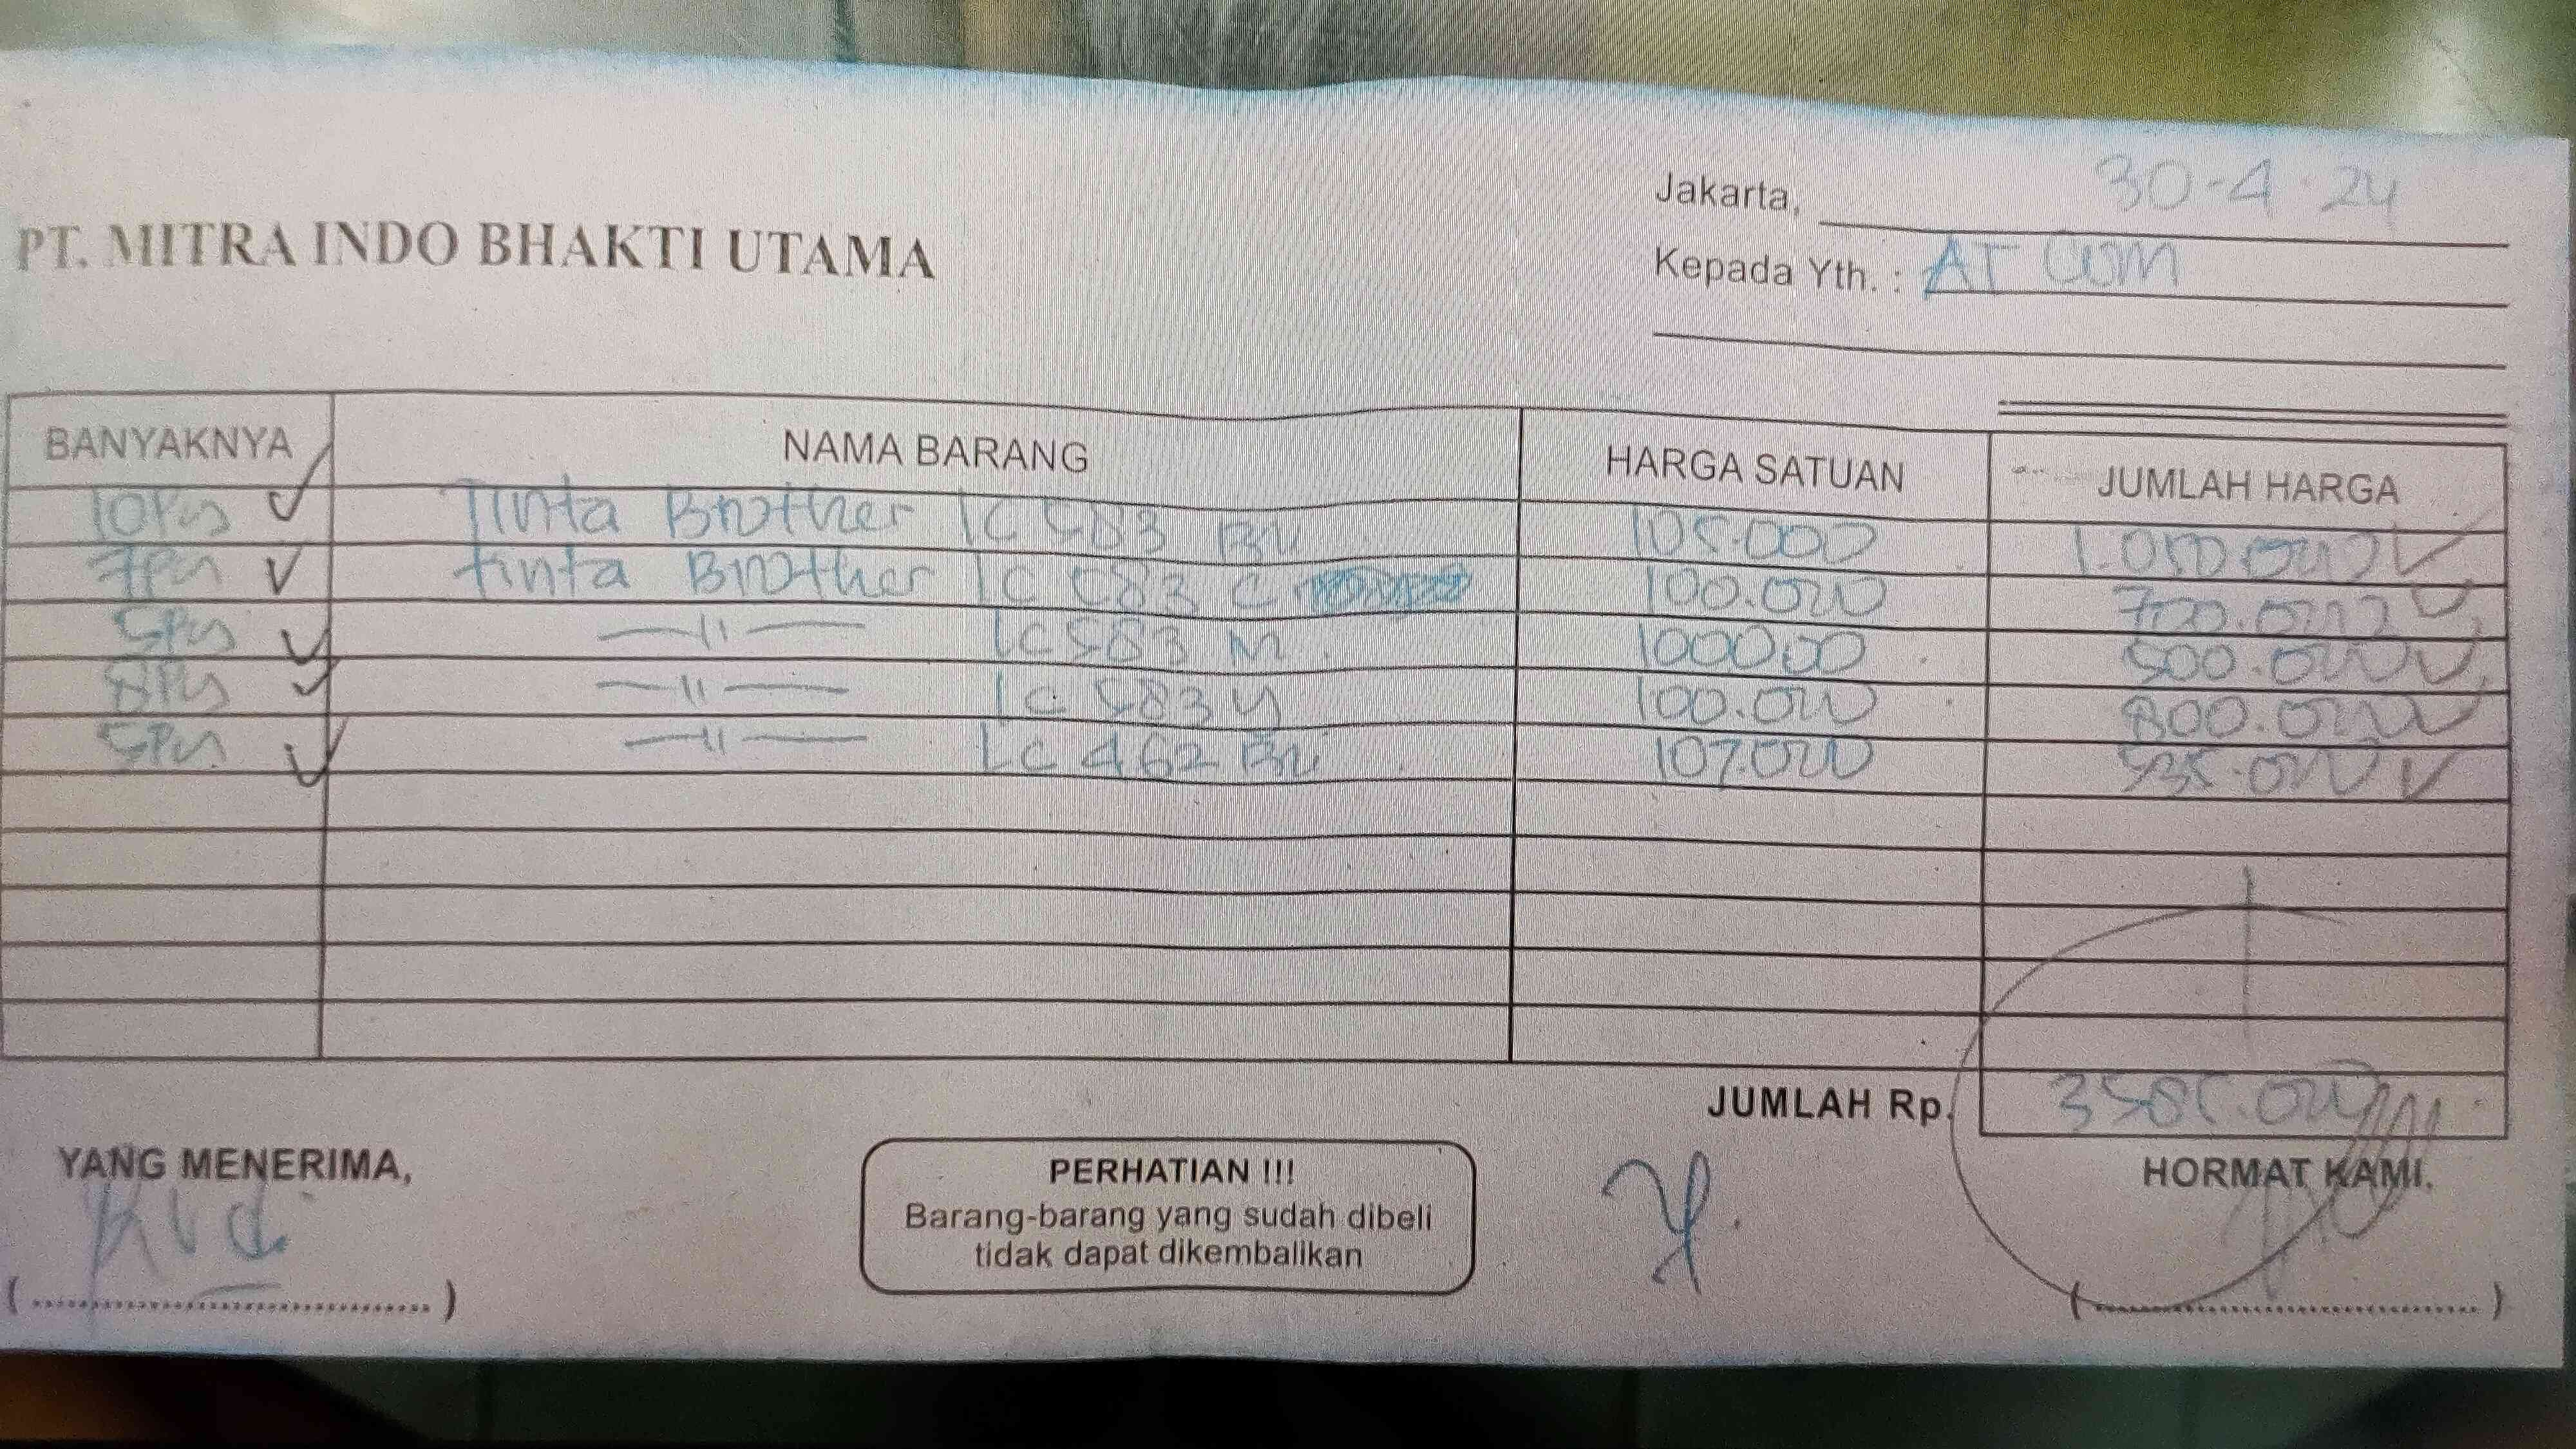 Jakarta, 30-4-24
PT. MITRA INDO BHAKTI UTAMA
Kepada Yth. : AT COM
BANYAKNYA NAMA BARANG HARGA SATUAN JUMLAH HARGA
10Pcs Tinta Brother LC 583 BK 105.000 1.050.000
7Pcs tinta Brother LC 583 C 100.000 700.000
5Pcs —〃— LC 583 M 100000 500.000
8Pcs —〃— LC 583 Y 100.000 800.000
5Pcs —〃— LC 462 BK 107.000 535.000
JUMLAH Rp. 3585.000
YANG MENERIMA,
PERHATIAN !!!
HORMAT KAMI,
Barang-barang yang sudah dibeli
tidak dapat dikembalikan
(....................) (....................)